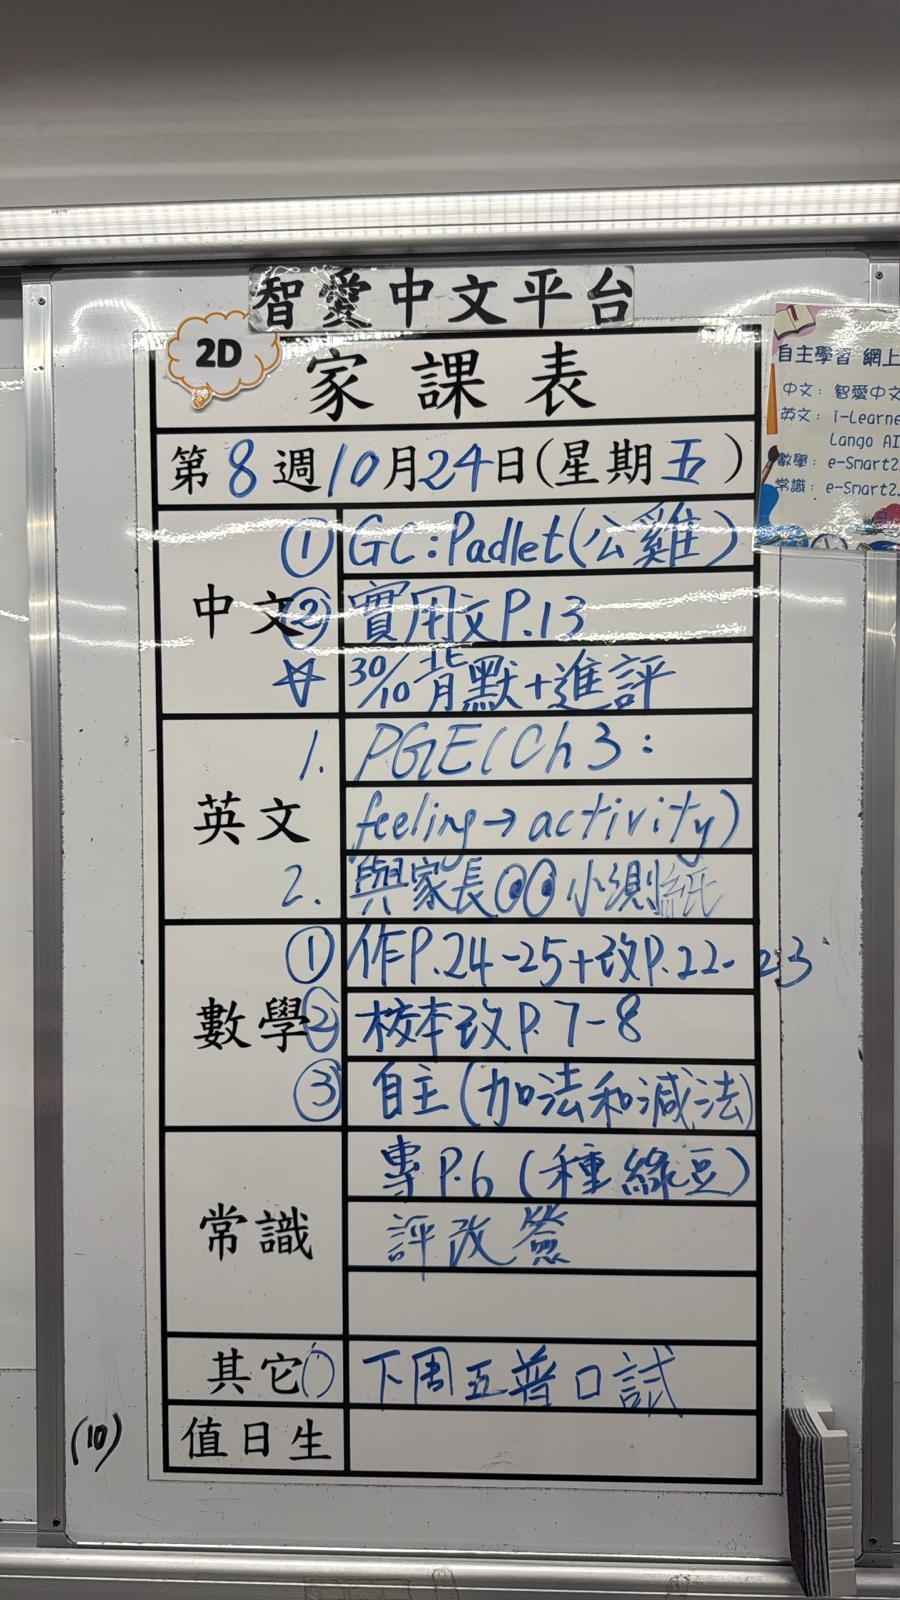 智愛中文平台
2D
家課表
第8週10月24日(星期五)
中文
① GC:Padlet(公雞)
② 實用文P.13
☆ 30/10 背默+進評
英文
1. PGE(Ch3:
feeling→activity)
2. 與家長 小測紙
數學
① 作P.24-25+改P.22-23
② 校本改P.7-8
③ 自主(加法和減法)
常識
專P.6(種綠豆)
評改簽
其它
① 下周五普口試
值日生
(10)
自主學習 網上
中文: 智愛中文
英文: i-Learne
Lango AI
數學: e-Smart2
常識: e-Smart2